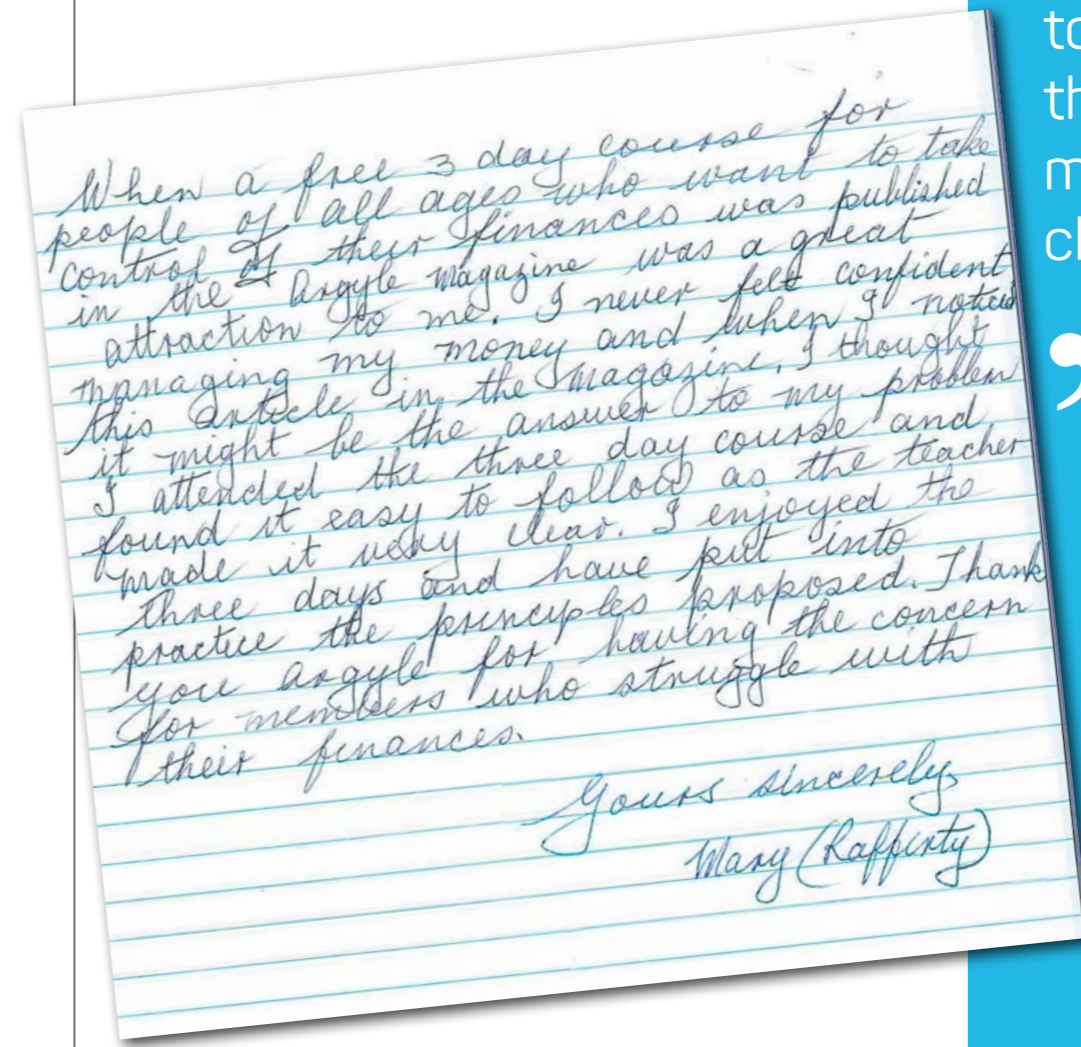 When a free 3 day course for
people of all ages who want to take
control of their finances was published
in the Argyle magazine was a great
attraction to me. I never felt confident
managing my money and when I noticed
this article in the magazine, I thought
it might be the answer to my problem
I attended the three day course and
found it easy to follow as the teacher
made it very clear. I enjoyed the
three days and have put into
practice the principles proposed. Thank
you argyle for having the concern
for members who struggle with
their finances.
Yours sincerely,
Mary (Rafferty)
to
th
m
cl
’